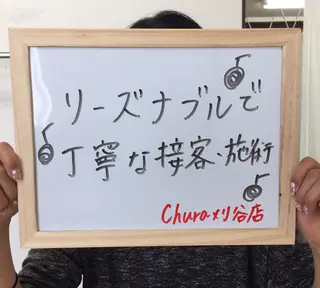 リーズナブルで
丁寧な接客・施術
Chura刈谷店